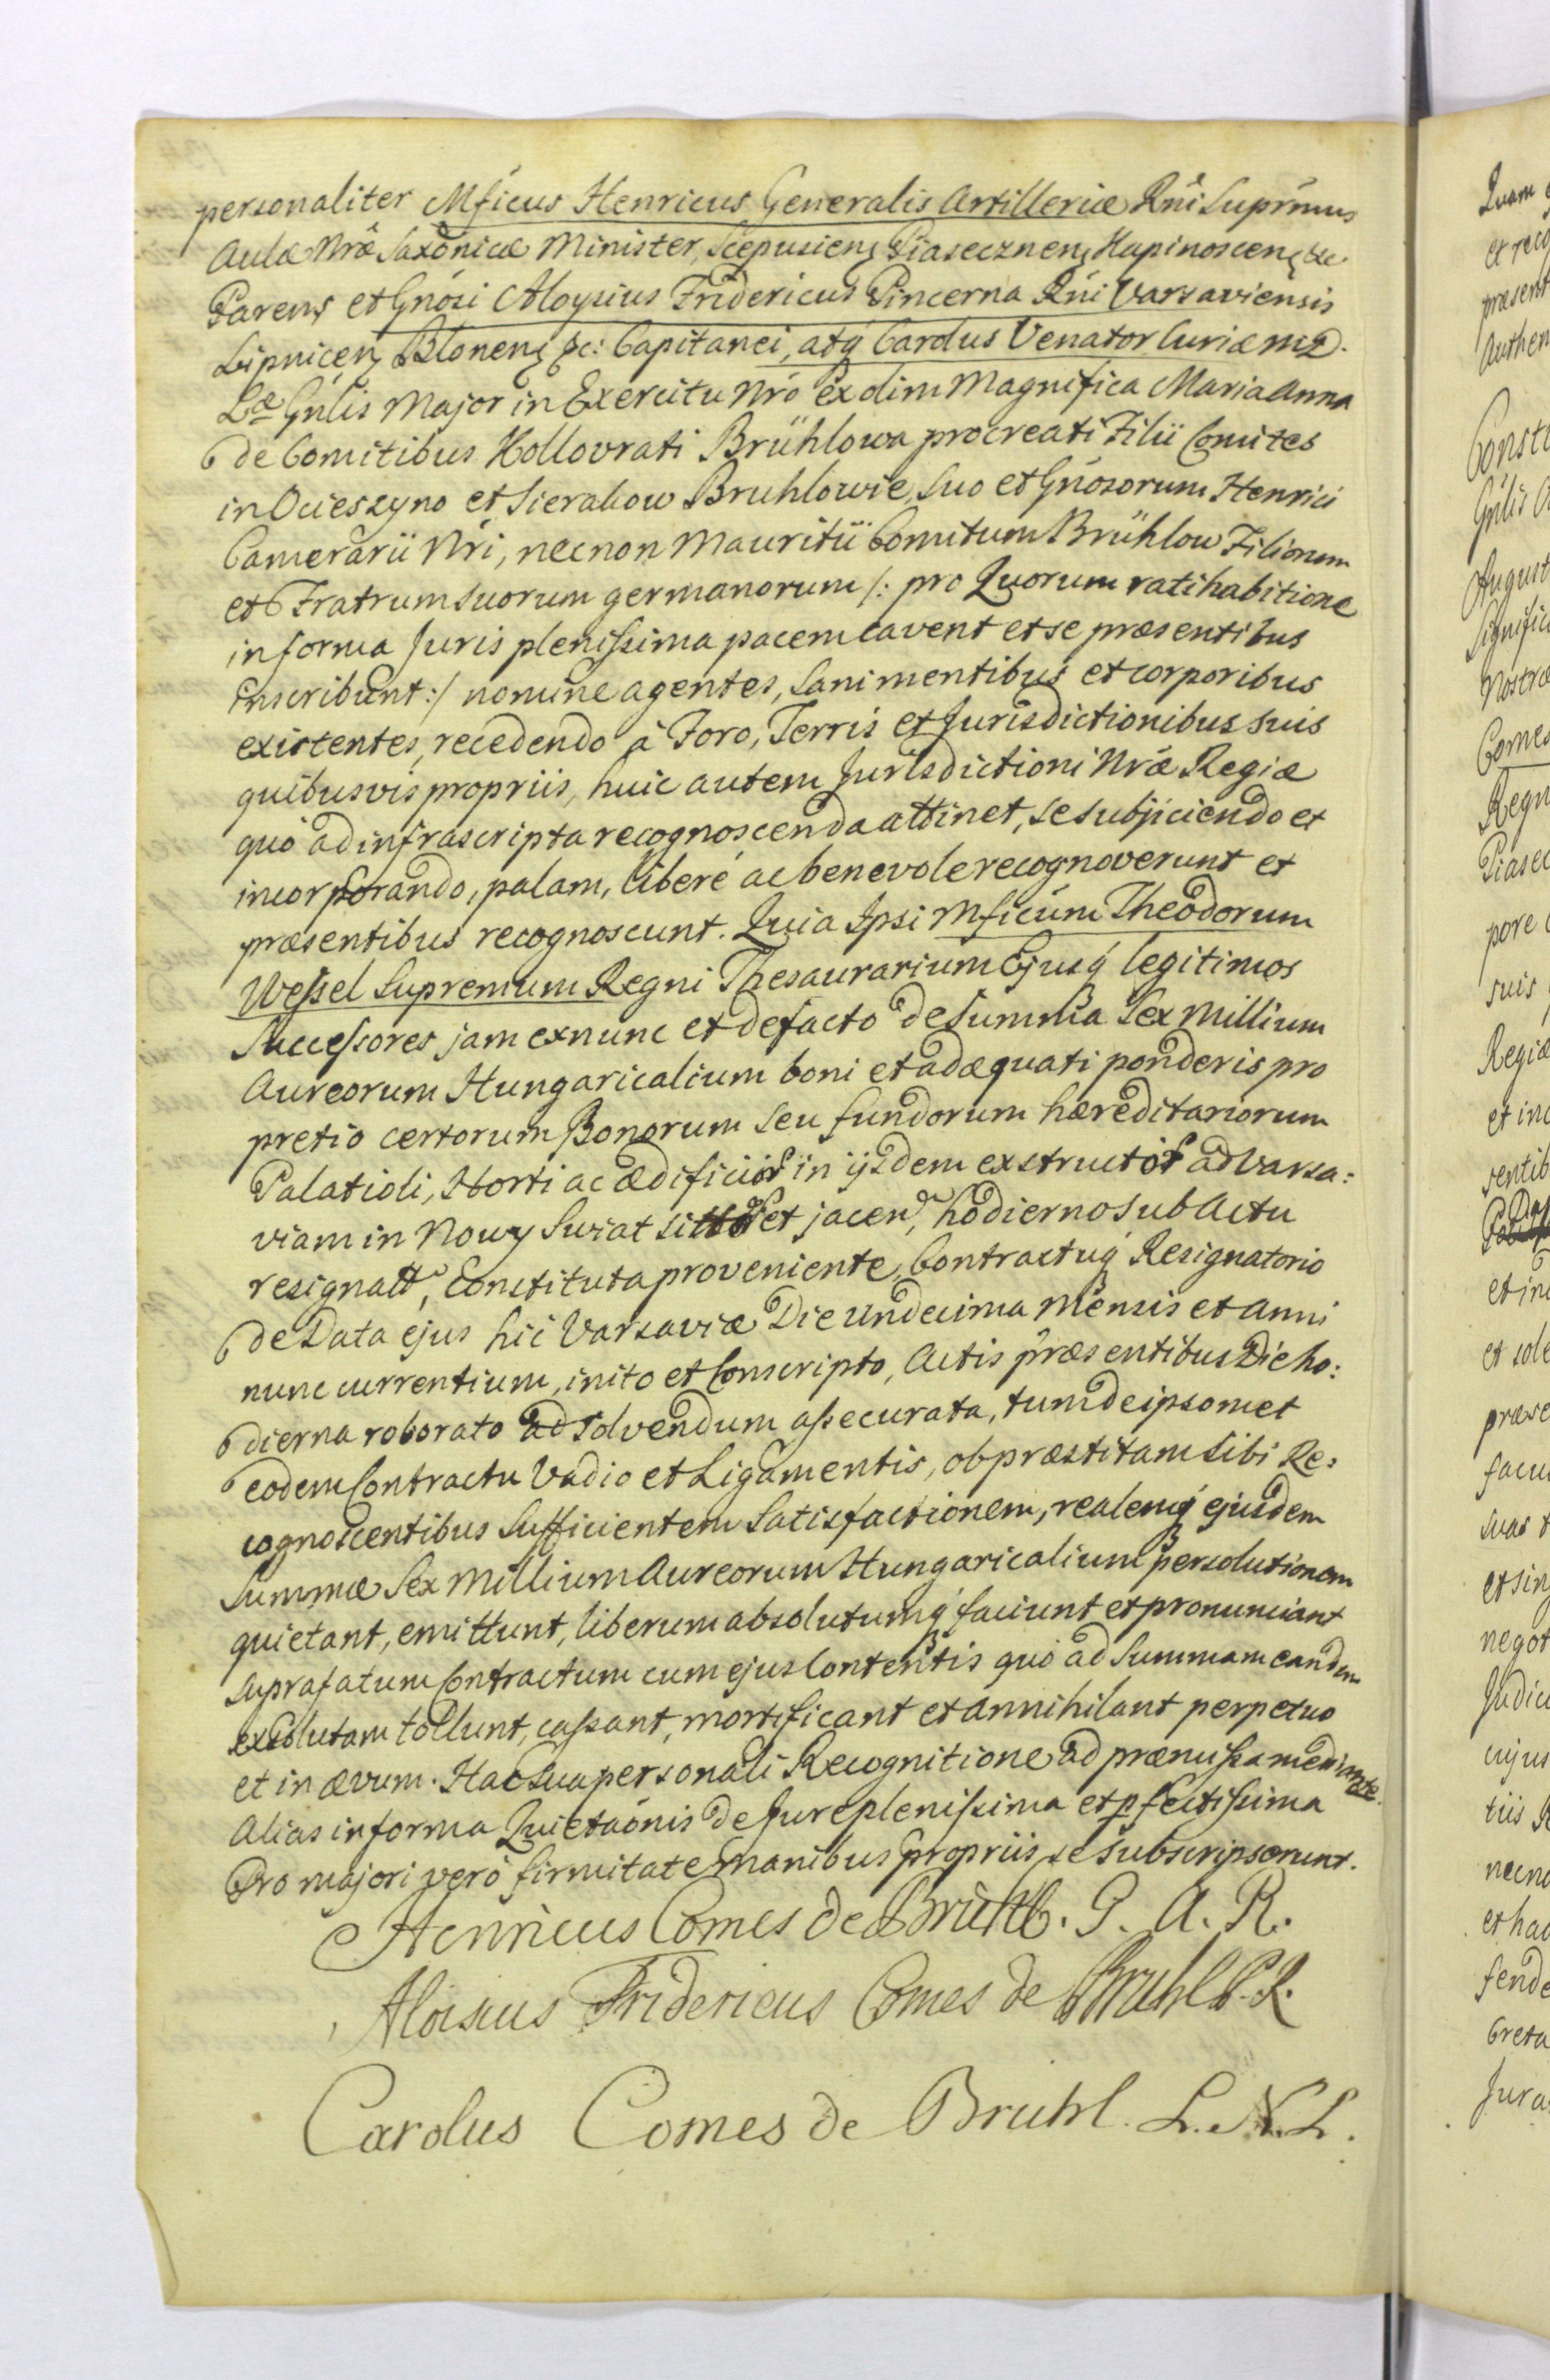 personaliter Mficus Henricus Generalis Artilleriæ Rni Suprmus
Aulæ Nræ Saxonicæ Minister, Scepusien Piaseczynen Kapinoscen &c
Parens et Gnosi Aloysius Fridericus Pincerna Rni Varsaviensis
Lipnicen Blonen &c: Capitanei, atq Carolus Venator Curiæ M.D.
Læ Gnlis Major in Exercitu Nro ex olim Magnifica Maria Anna
de Comitibus Kollovrati Brühlowa procreati Filii Comites
in Ocieszyno et Sierakow Bruhlowie, suo et Gnosorum Henrici
Camerarii Nri, necnon Mauritii Comitum Brühlow Filiorum
et Fratrum suorum germanorum /: pro Quorum ratihabitione
in forma Juris plenissima pacem cavent et se præsentibus
inscribunt :/ nomine agentes, sani mentibus et corporibus
existentes, recedendo à Foro, Terris et Jurisdictionibus suis
quibusvis propriis, huic autem Jurisdictioni Nræ Regiæ
quò ad infrascripta recognoscenda attinet, se subjiciendo et
incorporando, palam, liberé ac benevole recognoverunt et
præsentibus recognoscunt. Quia Ipsi Mficum Theodorum
Wessel Supremum Regni Thesaurarium Ejusq legitimos
Successores jam exnunc et defacto de Summa Sex Millium
Aureorum Hungaricalium boni et adæquati ponderis pro
pretio certorum Bonorum seu fundorum hæreditariorum
Palatioli, Horti ac ædificior in ijsdem exstructor ad Varsa:
viam in Nowy Swiat sittor et jacen, hodierno sub Actu
resignatt, Constituta proveniente, Contractuq Resignatorio
de Data ejus hic Varsaviæ Die Undecima Mensis et Anni
nunc currentium, inito et Conscripto, Actis præsentibus Die ho:
dierna roborato ad solvendum assecurata, tum de ipsomet
eodem Contractu Vadio et Ligamentis, ob præstitam sibi Re:
cognoscentibus sufficientem Satisfactionem, realemq ejusdem
Summæ Sex Millium Aureorum Hungaricalium persolutionem
quietant, emittunt, liberum absolutumq faciunt et pronunciant
suprafatum Contractum cum ejus Contentis quò ad Summam eandem
exsolutam tollunt, cassant, mortificant et annihilant perpetuo
et in ævum. Hac sua personali Recognitione ad præmissa mediante.
Alias in forma Quietaonis de Jure plenissima et pfectissima
Pro majori verò firmitate manibus propriis se subscripserunt.
Henricus Comes de Brühl. G. A. R.
Aloisius Fridericus Comes de Bruhl P. R.
Carolus Comes de Bruhl. L. N. L.